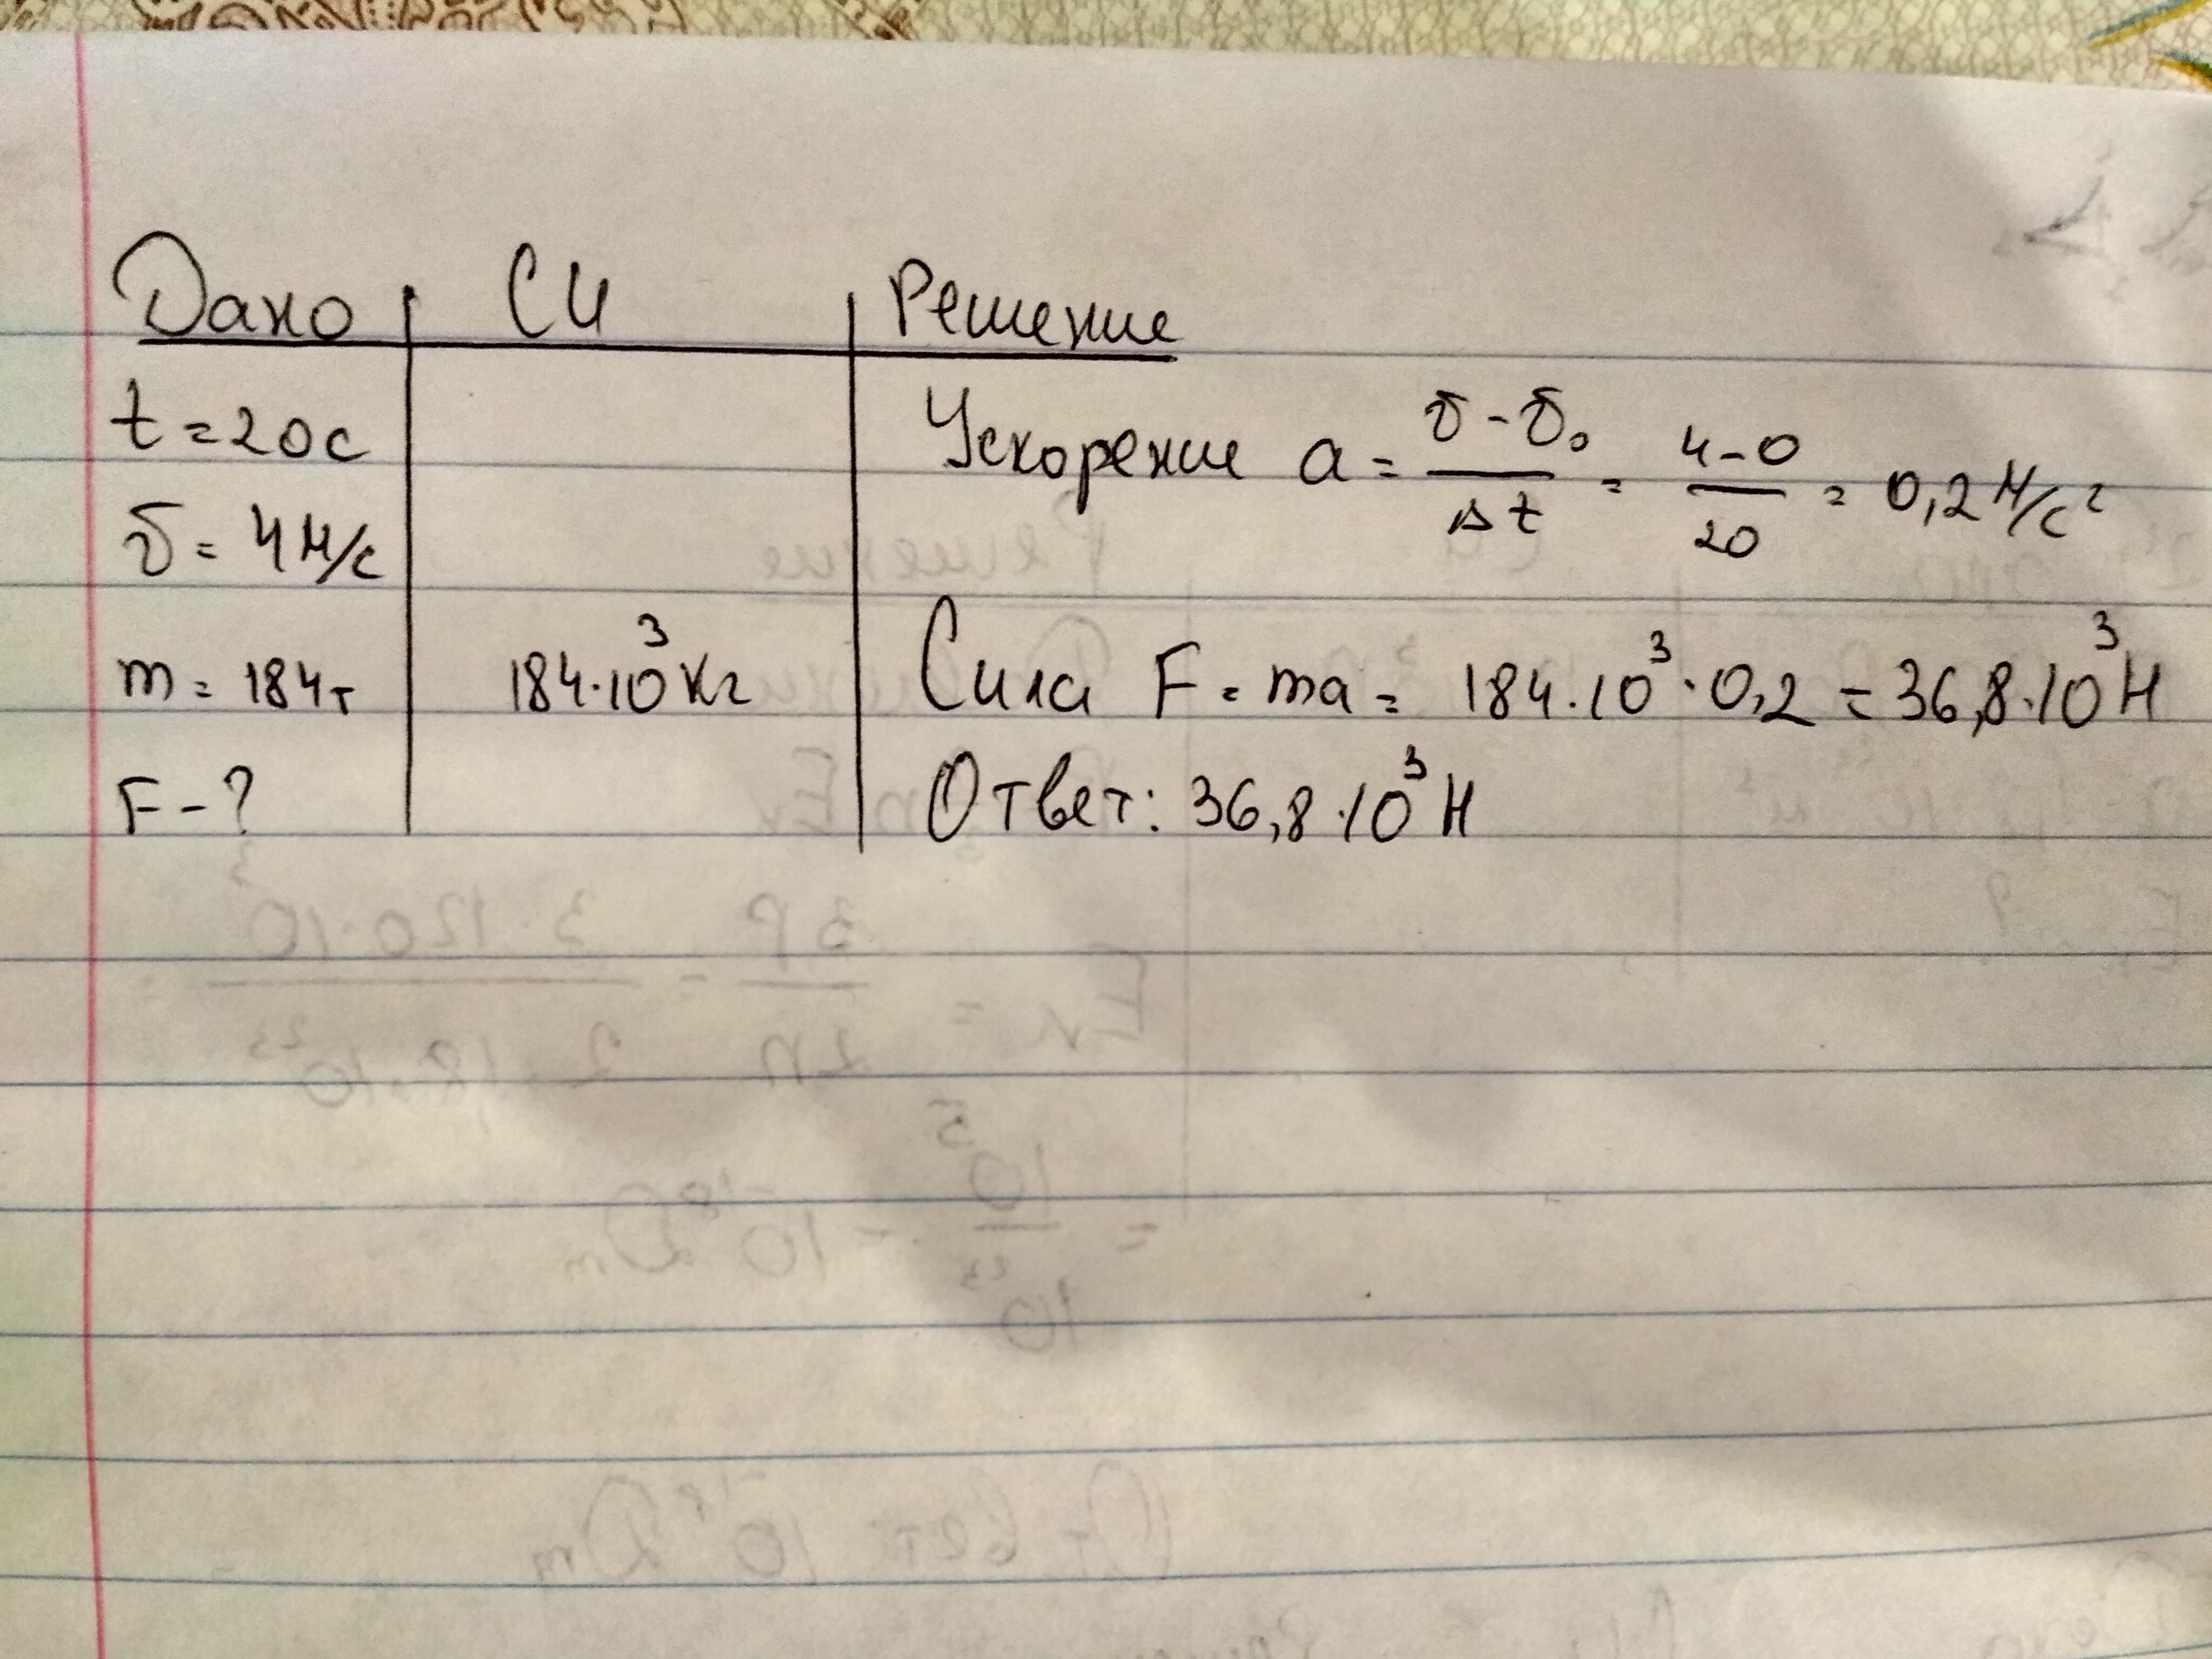 Дано СИ Решение
t = 20 с Ускорение a = (v - v₀)/Δt = (4-0)/20 = 0,2 м/с²
v = 4 м/с
m = 184 т 184·10³ кг Сила F = ma = 184·10³·0,2 = 36,8·10³ Н
F - ? Ответ: 36,8·10³ Н